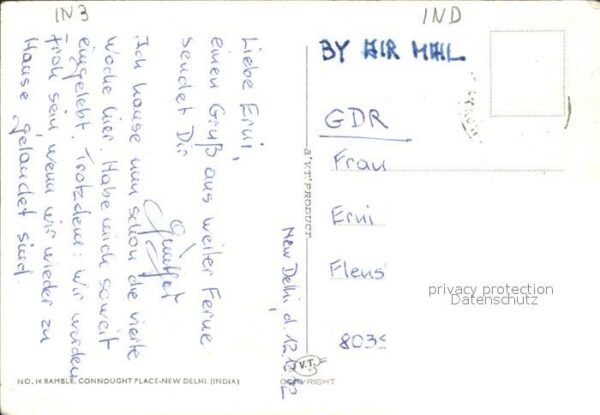 IN3
IND
BY AIR MAIL
New Delhi, d. 12.12.82
Liebe Erni,
einen Gruß aus weiter Ferne
sendet Dir
Ich hause nun schon die vierte
Woche hier. Habe mich soweit
eingelebt. Trotzdem: wir würden
froh sein, wenn wir wieder zu
Hause gelandet sind.
GDR
Frau
Erni
Flens
803
privacy protection
Datenschutz
A "V.T." PRODUCT
V.T.
NO. 14 RAMBLE, CONNOUGHT PLACE-NEW DELHI. (INDIA)
COPYRIGHT